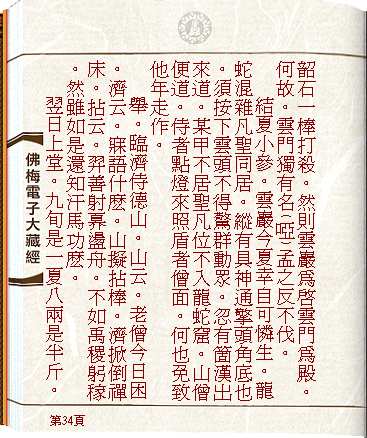 韶石一棒打殺。然則雲巖爲啓雲門爲殿。
何故。雲門獨有名(啞)孟之反不伐。
結夏小參。雲巖今夏幸自可憐生。龍
蛇混雜凡聖同居。縱有具神通擎頭角底也
須按下雲頭不得驚群動眾。忽有箇漢出
來道。某甲不居聖凡位不入龍蛇窟。山僧
便道。侍者點燈來照盾者僧面。何也免致
他年走作。
舉。臨濟侍德山。山云。老僧今日困
。濟云。寐語什麼。山擬拈棒。濟掀倒禪
床。拈云。羿善射奡盪舟。不如禹稷躬稼
。然雖如是還知汗馬功麼。
翌日上堂。九旬是一夏八兩是半斤。
佛梅電子大藏經
第34頁